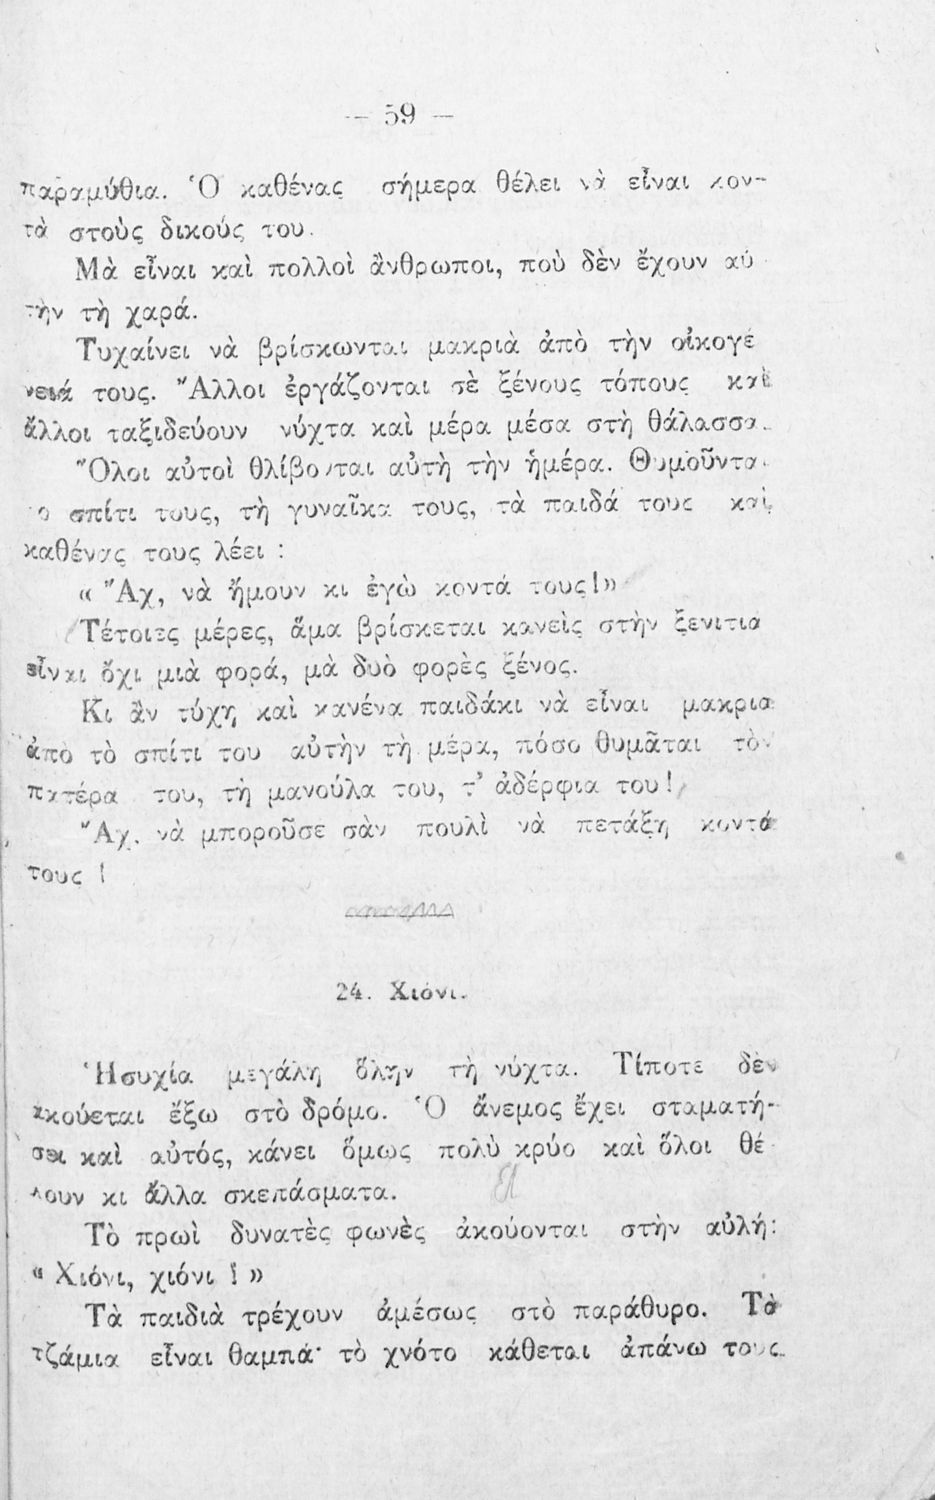 — 59 —
παραμύθια. Ὁ καθένας σήμερα θέλει νὰ εἶναι κον-
τὰ στοὺς δικούς του.
Μὰ εἶναι καὶ πολλοὶ ἄνθρωποι, ποὺ δὲν ἔχουν αὐ
τὴν τὴ χαρά.
Τυχαίνει νὰ βρίσκωνται μακριὰ ἀπὸ τὴν οἰκογέ
νειά τους. Ἄλλοι ἐργάζονται σὲ ξένους τόπους καὶ
ἄλλοι ταξιδεύουν νύχτα καὶ μέρα μέσα στὴ θάλασσα.
Ὅλοι αὐτοὶ θλίβονται αὐτὴ τὴν ἡμέρα. Θυμοῦνται
το σπίτι τους, τὴ γυναῖκα τους, τὰ παιδά τους καὶ
καθένας τους λέει :
« Ἄχ, νὰ ἤμουν κι ἐγὼ κοντά τους!»
Τέτοιες μέρες, ἅμα βρίσκεται κανεὶς στὴν ξενιτια
εἶναι ὄχι μιὰ φορά, μὰ δυὸ φορὲς ξένος.
Κι ἂν τύχῃ καὶ κανένα παιδάκι νὰ εἶναι μακρια
ἀπο τὸ σπίτι του αὐτὴν τὴ μέρα, πόσο θυμᾶται τὸν
πατέρα του, τὴ μανούλα του, τ' ἀδέρφια του!
Ἄχ. νὰ μποροῦσε σὰν πουλὶ νὰ πετάξῃ κοντά
τους !
24. Χιόνι.
Ἡσυχία μεγάλη ὅλην τὴ νύχτα. Τίποτε δὲν
ἀκούεται ἔξω στὸ δρόμο. Ὁ ἄνεμος ἔχει σταματή-
σει καὶ αὐτός, κάνει ὅμως πολὺ κρύο καὶ ὅλοι θέ
λουν κι ἄλλα σκεπάσματα.
Τὸ πρωὶ δυνατὲς φωνὲς ἀκούονται στὴν αὐλή:
« Χιόνι, χιόνι ! »
Τὰ παιδιὰ τρέχουν ἀμέσως στὸ παράθυρο. Τὰ
τζάμια εἶναι θαμπά· τὸ χνότο κάθεται ἀπάνω τους.